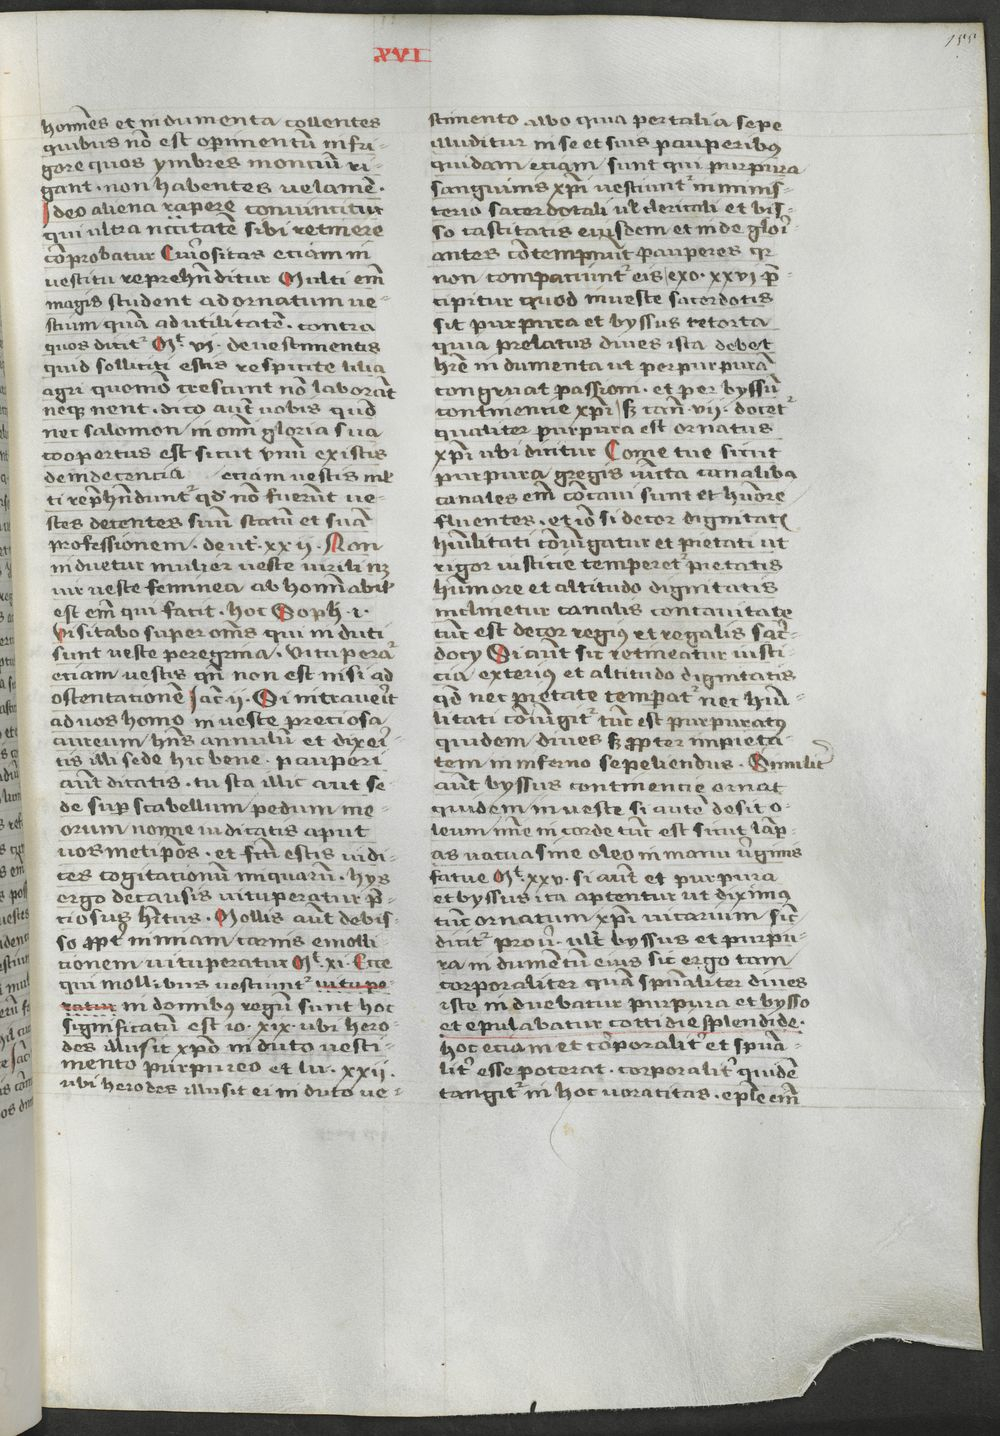 XVI
155
homīes et indumenta tollentes
quibus nō est opimentū in fri-
gore quos ymbres montiū ri-
gant . non habentes uelamē .
Ideo aliena rapere conuincitur
qui ultra nccītatē sibi retinere
cōprobatur Curiositas eciam in
uestitu reprehn̄ditur Multi em̄
magis student ad ornatum ue-
stium quā ad utilitatē . contra
quos dicitr Mt vi . de uestimentis
quid solliciti estis respicite lilia
agri quomō crescunt nō laborāt
neqȝ nent . dico aut̄ uobis quod
nec salomon in om̄i gloria sua
coopertus est sicut vnū ex istis
de indecencia eciam uestis ml̄-
ti rep̄hn̄duntr qd̄ nō fuerūt ue-
stes decentes suū statū et suā
professionem . deut̄ . xxii . Non
induetur mulier ueste uirili nȝ
uir ueste feminea abhominabil̄
est em̄ qui facit . hoc Soph . i .
visitabo super om̄s qui induti
sunt ueste peregrina . Vituperar
eciam uestis qn̄ non est nisi ad
ostentationem Jac̄ ii . Si intrauerit
ad uos homo in ueste preciosa
aureum hn̄s annulū et dixeri-
tis illi sede hic bene . pauperi
aūt dicatis . tu sta illic aut se-
de sup̄ scabellum pedum me-
orum nonne iudicatis aput
uosmetip̄os . et fc̄ti estis iudi-
ces cogitationū iniquarū . hys
ergo de causis uituperatur p̄-
ciosus hītus . Mollis aūt de bis-
so ꝓpt̄ nimiam carnis emolli-
tionem uituperatur Mt xi . Ecce
qui mollibus uestiuntr uitupe-
ratur in domibus regū sunt hoc
significatū est io . xix . ubi hero-
des illusit xp̄o induto uesti-
mento purpureo et lu . xxii .
ubi herodes illusit ei induto ue-
stimento albo quia per talia sepe
illuditur in se et suis pauperibus
quidam eciam sunt qui purpura
sanguinis xp̄i uestiuntr in minis-
terio sacerdotali ul̄ clericali et bis-
so castitatis eiusdem et inde glori-
antes cōtempnūt pauperes qr
non compaciuntr eis exo . xxvi p̄-
cipitur quod in ueste sacerdotis
sit purpura et byssus retorta
quia prelatus diues ista debet
hr̄e indumenta ut per purpurā
congruat passioni . et per byssū
continencie xp̄i sȝ can̄ . vii . docetr
qualiter purpura est ornatus
xp̄i ubi dicitur Come tue sicut
purpura gregis iūcta canalibȝ
canales em̄ cōcaui sunt et hūore
fluentes . et iō si decor dignitatꝭ
hūilitati cōiūgatur et pietati ut
rigor iusticie temperetr pietatis
humore et altitudo dignitatis
inclinetur canalis concauitate
tūc est decor regius et regalis sacer-
docy Si aūt sic retineatur iusti-
cia exterius et altitudo dignitatis
qd̄ nec pietate temp̄atr nec hūi-
litati cōiūgitr tūc est purpuratus
quidem diues sȝ ꝓpter impieta-
tem in inferno sepeliendus . Similit̄
aūt byssus continencie ornat
quidem in ueste si autē desit o-
leum īne in corde tūc est sicut lāp-
as uacua sine oleo in manu uirginis
fatue Mt . xxv . si aūt et purpura
et byssus ita aptentur ut diximus
tūc ornatum xp̄i uicarium sic̄
dicitr prou̅ . ult̄ byssus et purpu-
ra indumentū eius sic ergo tam
corporaliter quā spūaliter diues
iste induebatur purpura et bysso
et epulabatur cottidie splendide .
hoc eciam et corporalitr et spūa-
litr esse poterat . corporalitr quidē
tangitr in hoc uoracitas . eple em̄